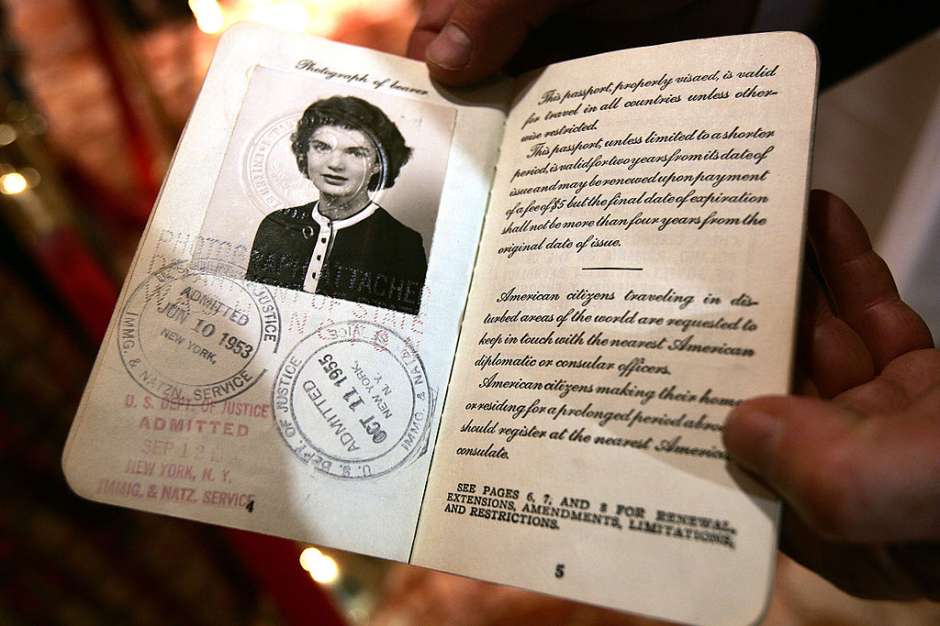 Photograph of bearer
PHOTOGRAPH ATTACHED
DEPARTMENT OF STATE
ADMITTED
JUN 10 1953
NEW YORK,
IMMG. & NATZN. SERVICE
JUSTICE
U. S. DEPT. OF JUSTICE
ADMITTED
OCT 11 1955
NEW YORK, N.Y.
IMMG. & NATZ. SERVICE
U. S. DEPT. OF JUSTICE
ADMITTED
SEP 12
NEW YORK, N. Y.
IMMIG. & NATZ. SERVICE
4
This passport, properly visaed, is valid
for travel in all countries unless other-
wise restricted.
This passport, unless limited to a shorter
period, is valid for two years from its date of
issue and may be renewed upon payment
of a fee of $5 but the final date of expiration
shall not be more than four years from the
original date of issue.
American citizens traveling in dis-
turbed areas of the world are requested to
keep in touch with the nearest American
diplomatic or consular officers.
American citizens making their home
or residing for a prolonged period abro
should register at the nearest America
consulate.
SEE PAGES 6, 7, AND 8 FOR RENEWAL,
EXTENSIONS, AMENDMENTS, LIMITATIONS,
AND RESTRICTIONS.
5